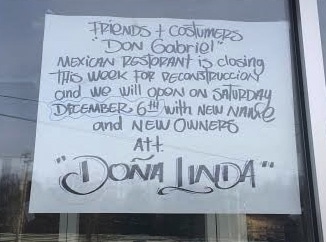 FRIENDS + COSTUMERS
"DON GABRIEL"
MEXICAN RESTORANT is closing
THIS WEEK FOR DECONSTRUCCION
and we will open on SATURDAY
DECEMBER 6TH with NEW NAME
and NEW OWNERS
Att.
"DOÑA LINDA"